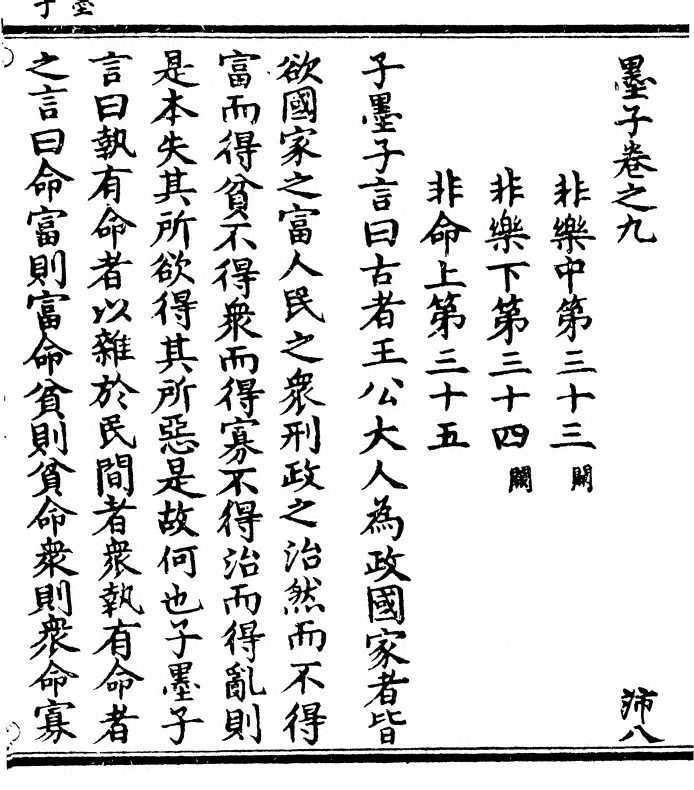 墨子
墨子卷之九 沛八
非樂中第三十三 闕
非樂下第三十四 闕
非命上第三十五
子墨子言曰古者王公大人為政國家者皆
欲國家之富人民之衆刑政之治然而不得
富而得貧不得衆而得寡不得治而得亂則
是本失其所欲得其所惡是故何也子墨子
言曰執有命者以雜於民間者衆執有命者
之言曰命富則富命貧則貧命衆則衆命寡